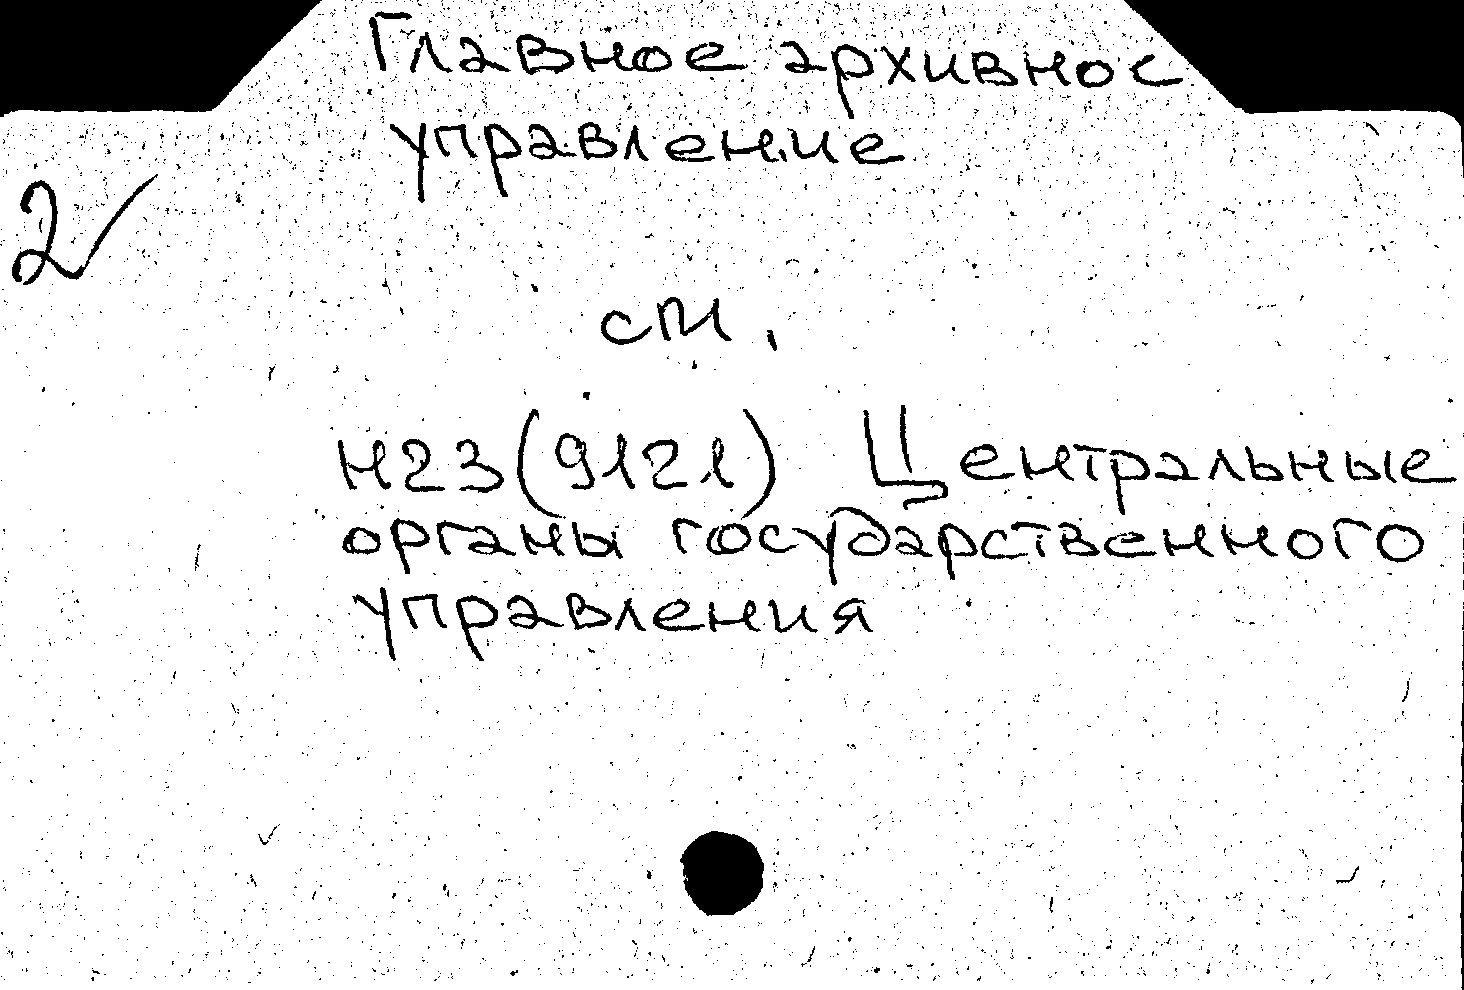 Главное архивное
управление
2
см.
Н23(9121) Центральные
органы государственного
управления